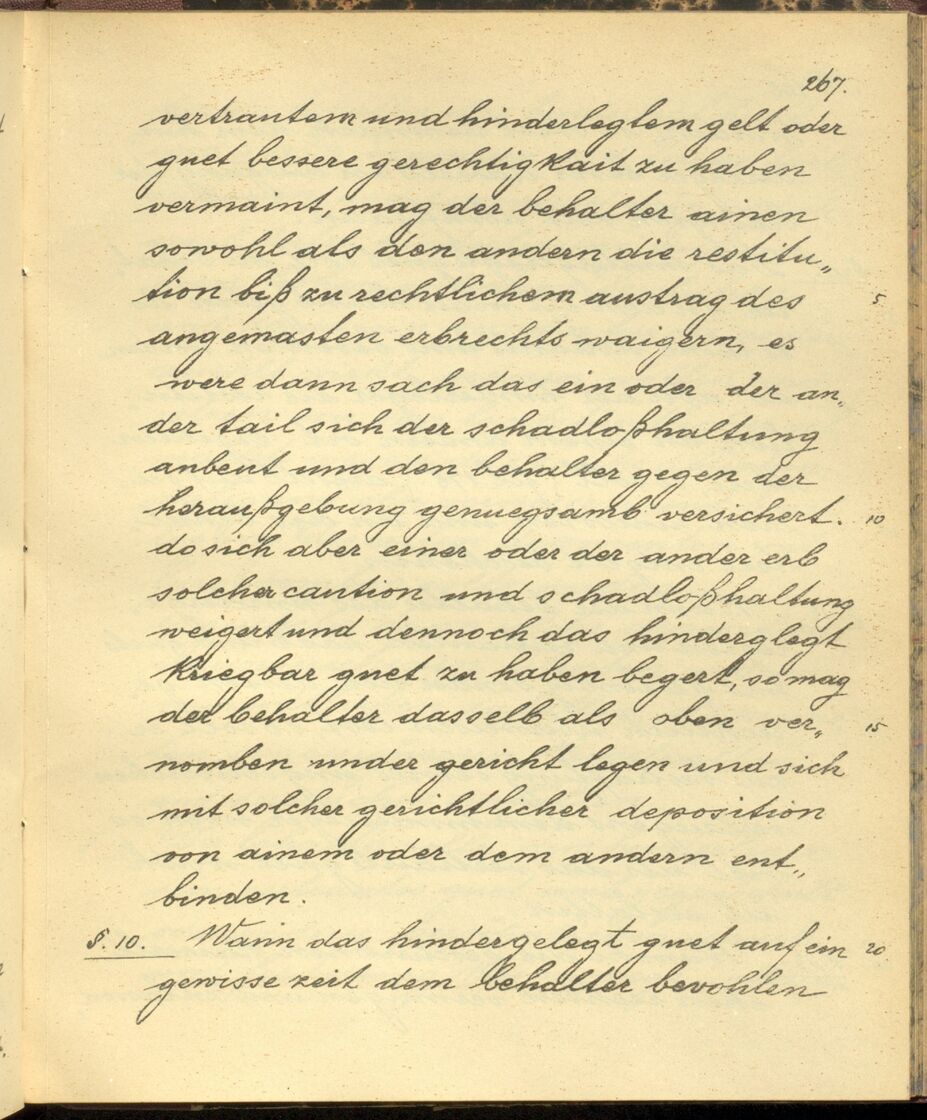 267.
vertrautem und hinderlegtem gelt oder
guet bessere gerechtigkait zu haben
vermaint, mag der behalter ainen
sowohl als den andern die restitu„
tion biß zu rechtlichem austrag des 5
angemasten erbrechts waigern, es
were dann sach das ein oder der an„
der tail sich der schadloßhaltung
anbeut und den behalter gegen der
heraußgebung genuegsamb versichert. 10
do sich aber einer oder der ander erb
solcher caution und schadloßhaltung
weigert und dennoch das hinderglegt
kriegbar guet zu haben begert, so mag
der behalter dasselb als oben ver„ 15
nomben under gericht legen und sich
mit solcher gerichtlicher deposition
von ainem oder dem andern ent„
binden.
§. 10. Wann das hindergelegt guet auf ein 20
gewisse zeit dem behalter bevohlen